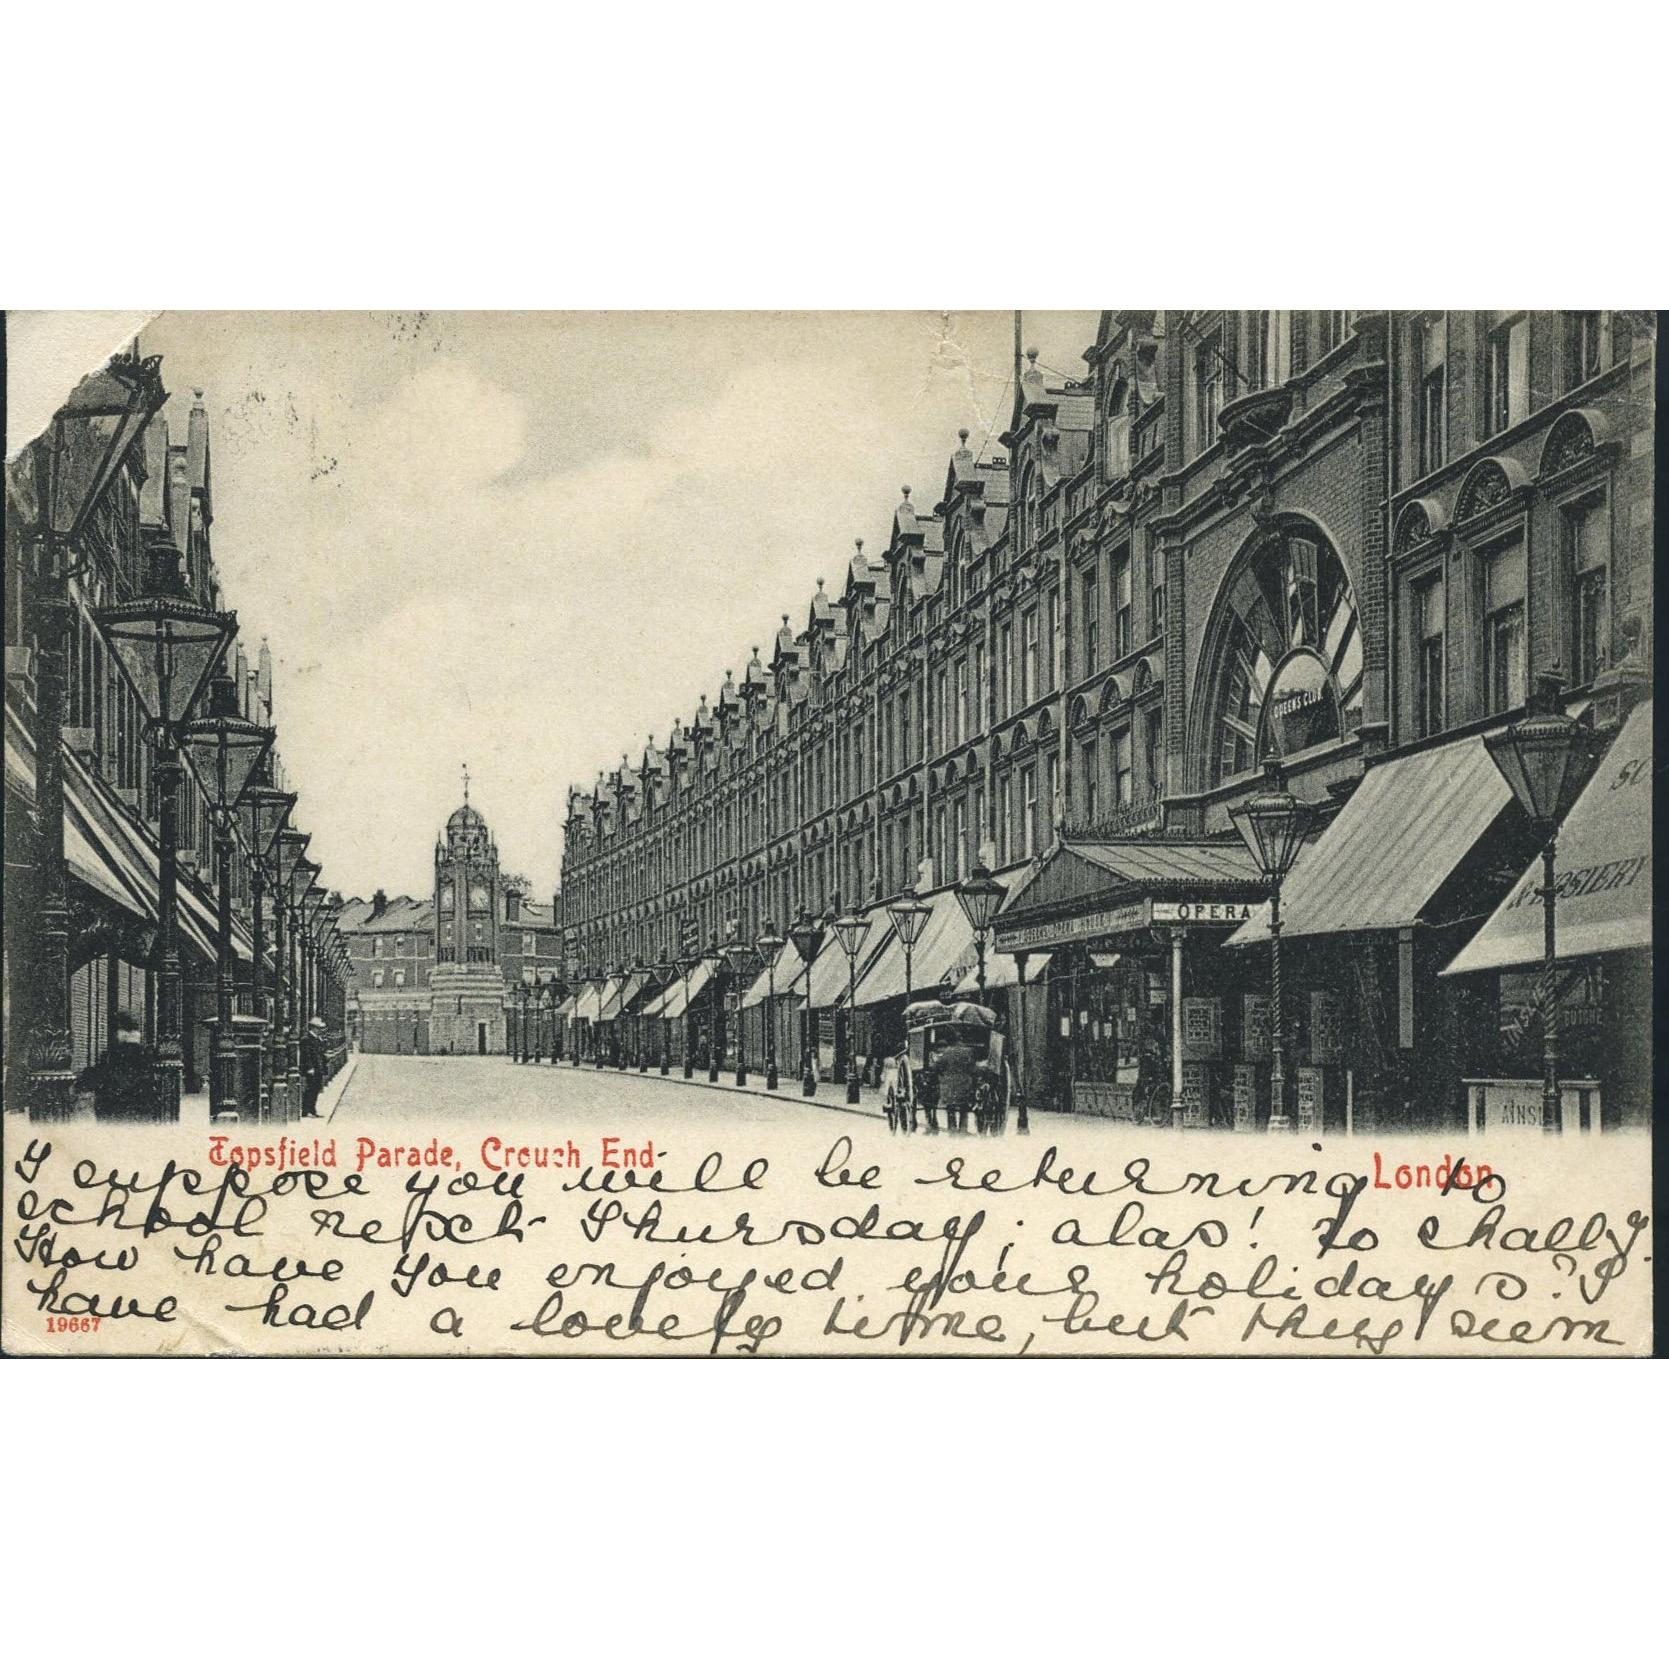 QUEENS CLUB
OPERA
HOSIERY
AINSL
Topsfield Parade, Crouch End.
London
I suppose you will be returning to
school next Thursday; alas! so shall I.
How have you enjoyed your holidays? I
have had a lovely time, but they seem
19667